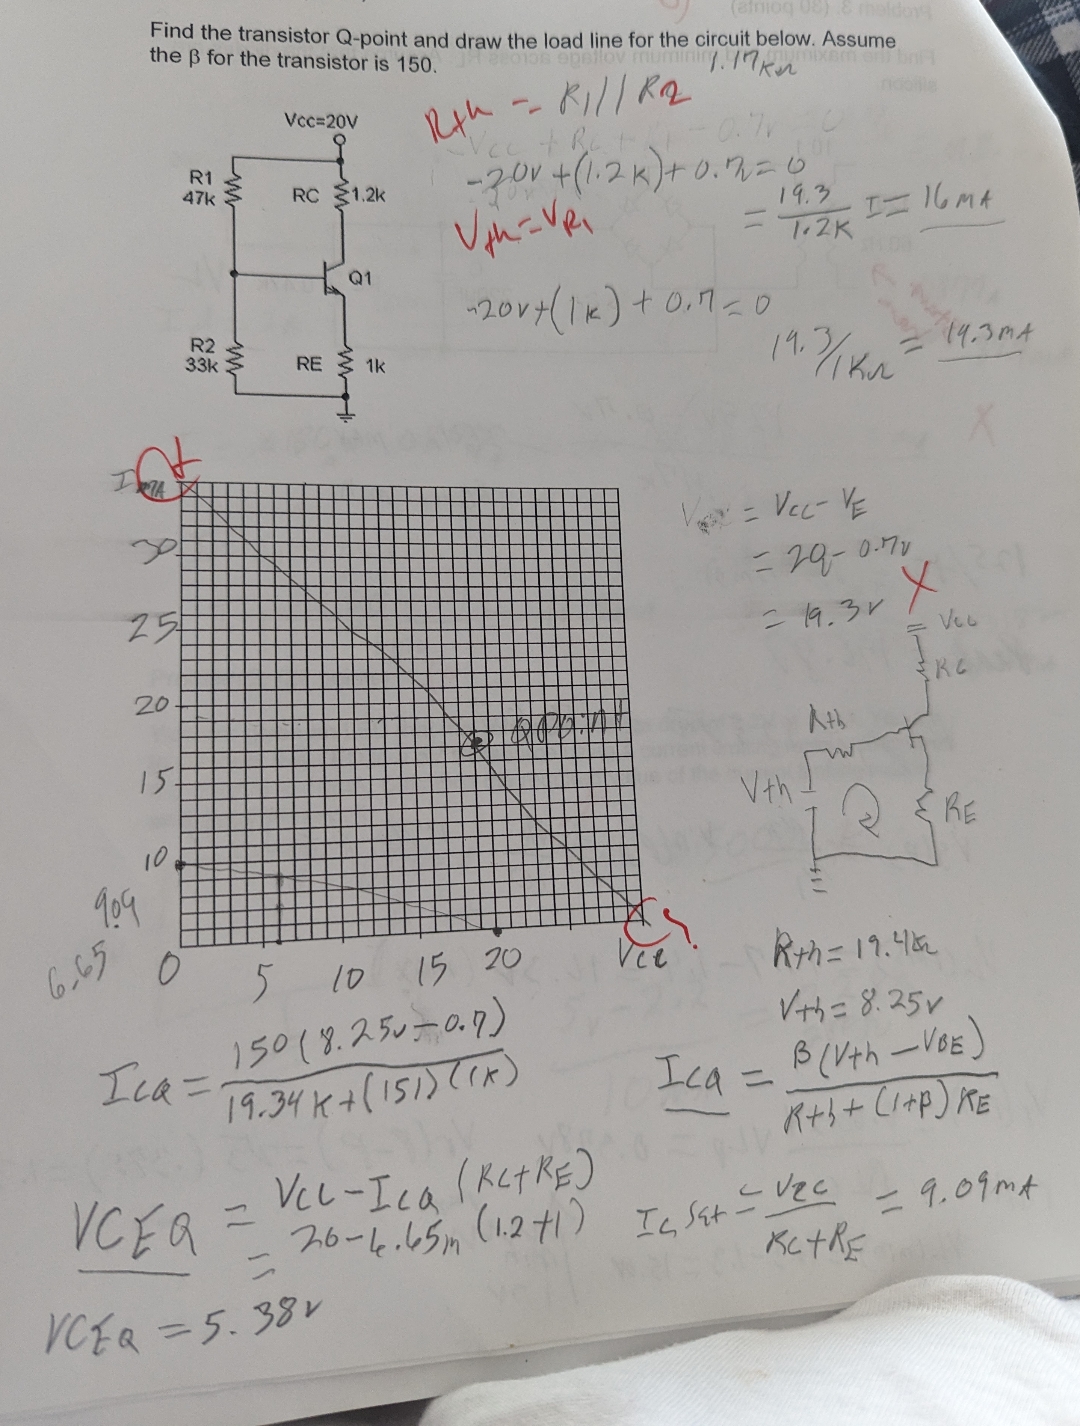 Find the transistor Q-point and draw the load line for the circuit below. Assume
the β for the transistor is 150.
1.17KΩ
Rth = R1//R2
Vcc=20V
R1
47k
RC
1.2k
Q1
R2
33k
RE
1k
-20v+(1.2K)+0.7=0
= 19.3/1.2K I = 16mA
Vth=VR1
-20v+(1k)+0.7=0
19.3/1KΩ = 19.3mA
30
25
20
15
10
9.09
6.65
0 5 10 15 20 Vcc
QPoint
= Vcc-VE
= 20-0.7v
= 19.3v
Vcc
RC
Rth
Vth
RE
Rth=19.4kΩ
Vth=8.25v
ICQ = 150(8.25v-0.7)/19.34K+(151)(1K)
ICQ = β(Vth-VBE)/Rth+(1+β)RE
VCEQ = VCC-ICQ(RC+RE)
= 20-6.65m(1.2+1)
IC Sat = VCC/RC+RE = 9.09mA
VCEQ = 5.38v